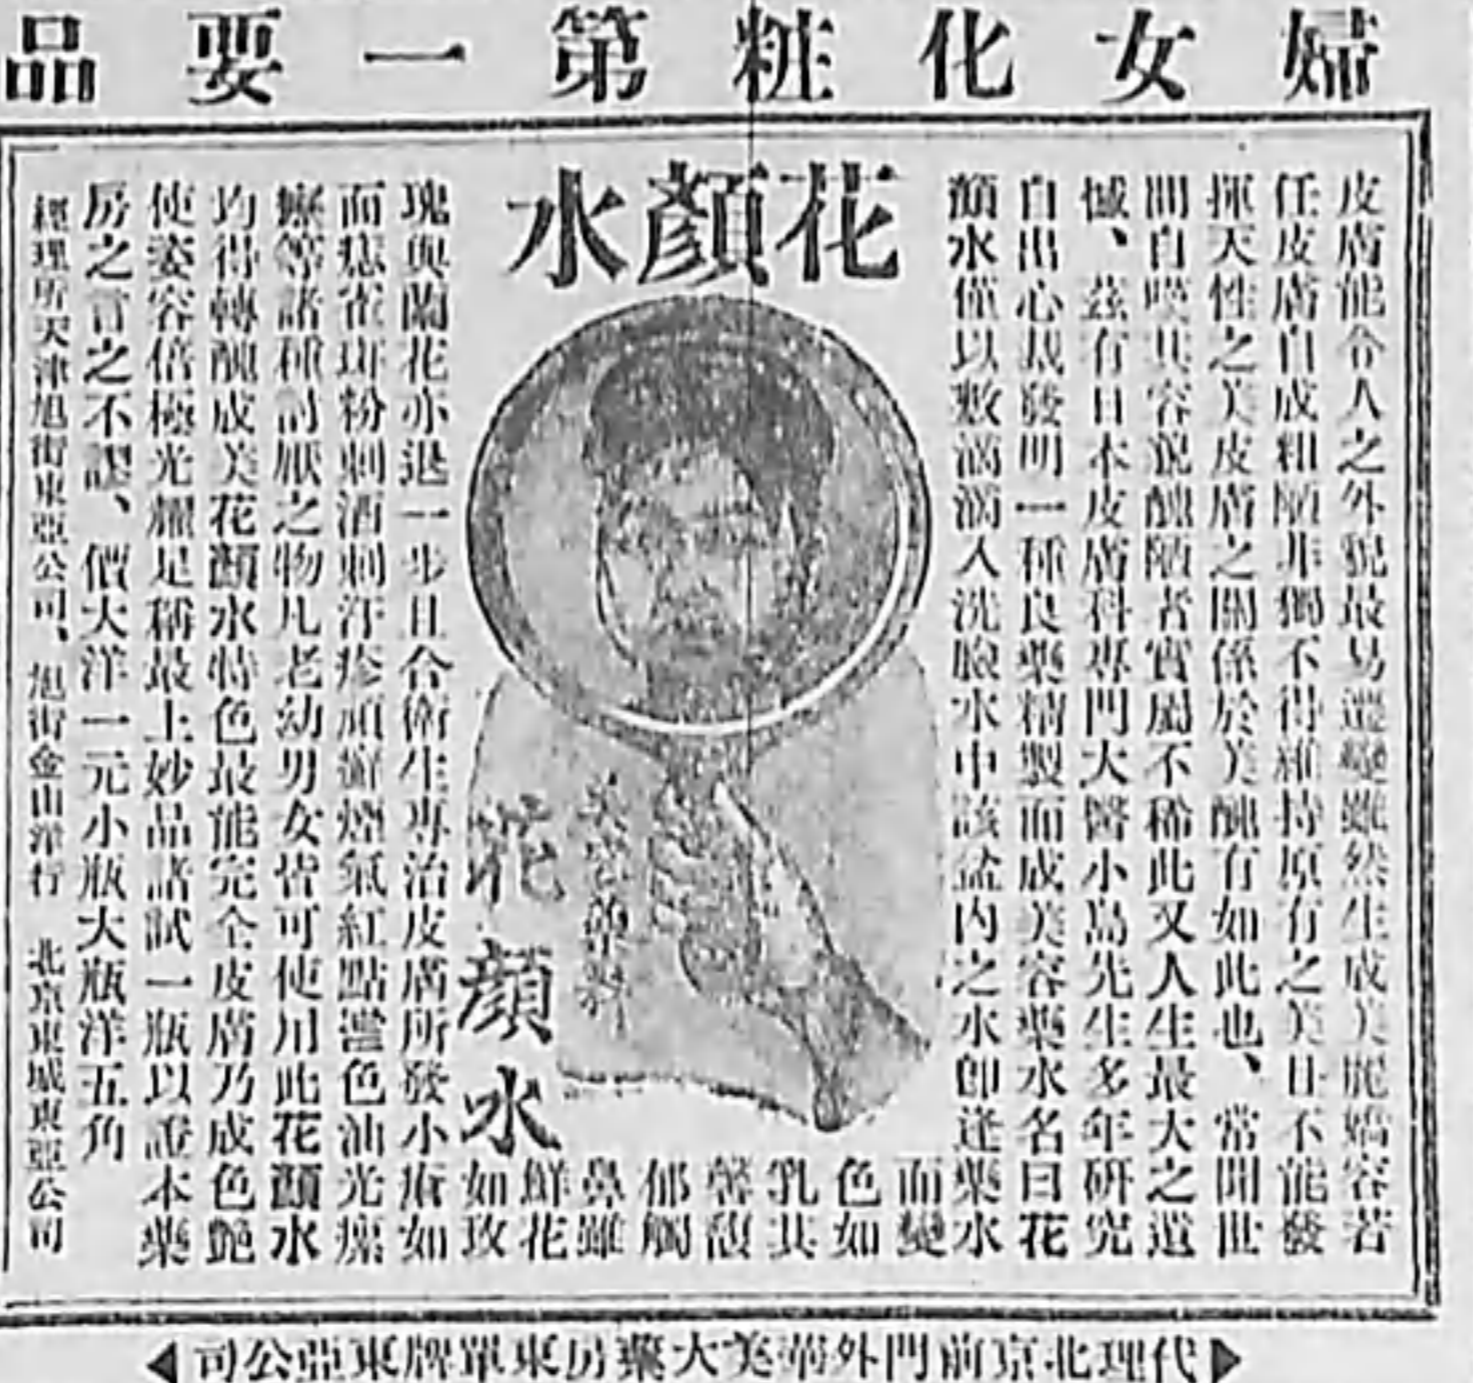 婦女化粧第一要品
花顏水
皮膚能令人之外貌最易遷變雖然生成美麗嬌容若
任皮膚自成粗陋非獨不得維持原有之美且不能發
揮天性之美皮膚之關係於美醜有如此也、常聞世
間自嘆其容貌醜陋者實屬不稀此又人生最大之遺
憾、茲有日本皮膚科專門大醫小島先生多年研究
自出心裁發明一種良藥精製而成美容藥水名曰花
顏水僅以數滴滴入洗臉水中該盆內之水即逢藥水
面變
色如
乳其
馨馥
郁觸
鼻雖
鮮花
如玫
瑰與蘭花亦退一步且合衛生專治皮膚所發小瘡如
面痣雀斑粉刺酒刺汗疹頑癬煙氣紅點濫色油光瘰
癧等諸種討厭之物凡老幼男女皆可使用此花顏水
均得轉醜成美花顏水特色最能完全皮膚乃成色艷
使姿容倍極光耀足稱最上妙品諸試一瓶以證本藥
房之言之不謬、價大洋一元小瓶大瓶洋五角
經理所天津旭街東亞公司、旭街金山洋行 北京東城東亞公司
花顏水
代理北京前門外華美大藥房東單牌東亞公司